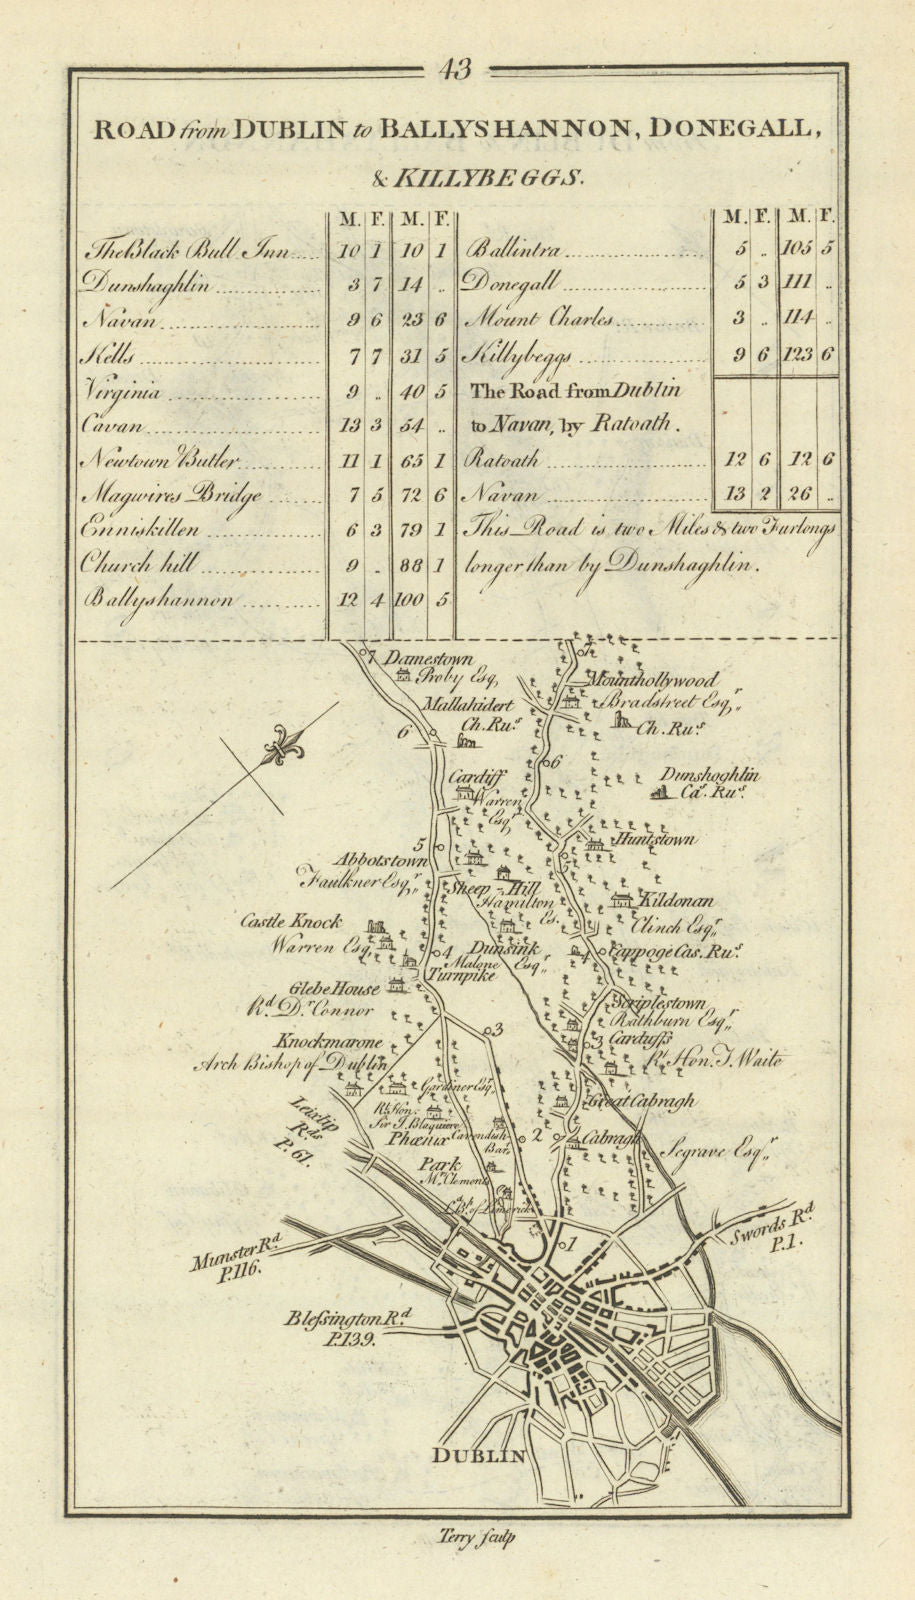 43
ROAD from DUBLIN to BALLYSHANNON, DONEGALL,
& KILLYBEGGS.
M. F. M. F.
The Black Bull Inn.... 10 1 10 1
Dunshaghlin 3 7 14 ..
Navan 9 6 23 6
Kells 7 7 31 5
Virginia 9 .. 40 5
Cavan 13 3 54 ..
Newtown Butler 11 1 65 1
Magwires Bridge 7 5 72 6
Enniskillen 6 3 79 1
Church hill 9 .. 88 1
Ballyshannon 12 4 100 5
M. F. M. F.
Ballintra 5 .. 105 5
Donegall 5 3 111 ..
Mount Charles 3 .. 114 ..
Killybeggs 9 6 123 6
The Road from Dublin
to Navan, by Ratoath.
Ratoath 12 6 12 6
Navan 13 2 26 ..
This Road is two Miles & two Furlongs
longer than by Dunshaghlin.
7
Damestown
Proby Esq.
7
Mounthollywood
Bradstreet Esqr.,
Mallahidert
Ch. Rus.
Ch. Rus.
6
6
Cardiff
Warren
Esqr.
Dunshoghlin
Cas. Rus.
5
Huntstown
Abbotstown
Faulkner Esqr.,
5
Sheep-Hill
Hamilton
Es.
Kildonan
Clinch Esqr.,
Castle Knock
Warren Esq.
4
Dunsink
Malone Esqr.,
4
Cappoge Cas. Rus.
Turnpike
Glebe House
Rd. Dr. Connor
Scriplestown
Rathburn Esqr.,
3
3
Carduffs
Rt. Hon. T. Waite
Knockmarone
Arch Bishop of Dublin
Gardiner Esq.,
Great Cabragh
Leixlip
Rds.
P. 61.
Rt. Hon:
Sir J. Blaquiere
Phœnix
Park
Cavendish
Bart.
2
2
Cabragh
Segrave Esqr.,
Mr. Clements
Ld. Bp. of Limerick
Munster Rd.
P. 116.
1
Swords Rd.
P. 1.
Blessington Rd.
P. 139.
DUBLIN
Terry sculp